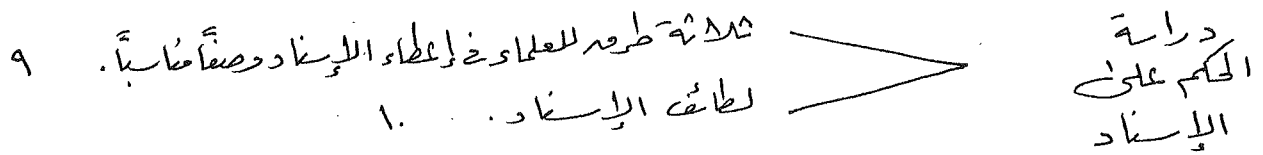 دراسة
الحكم على
الإسناد
ثلاثة طرق للعلماء في إعطاء الإسناد وصفًا مناسبًا. ٩
لطائف الإسناد. ١٠